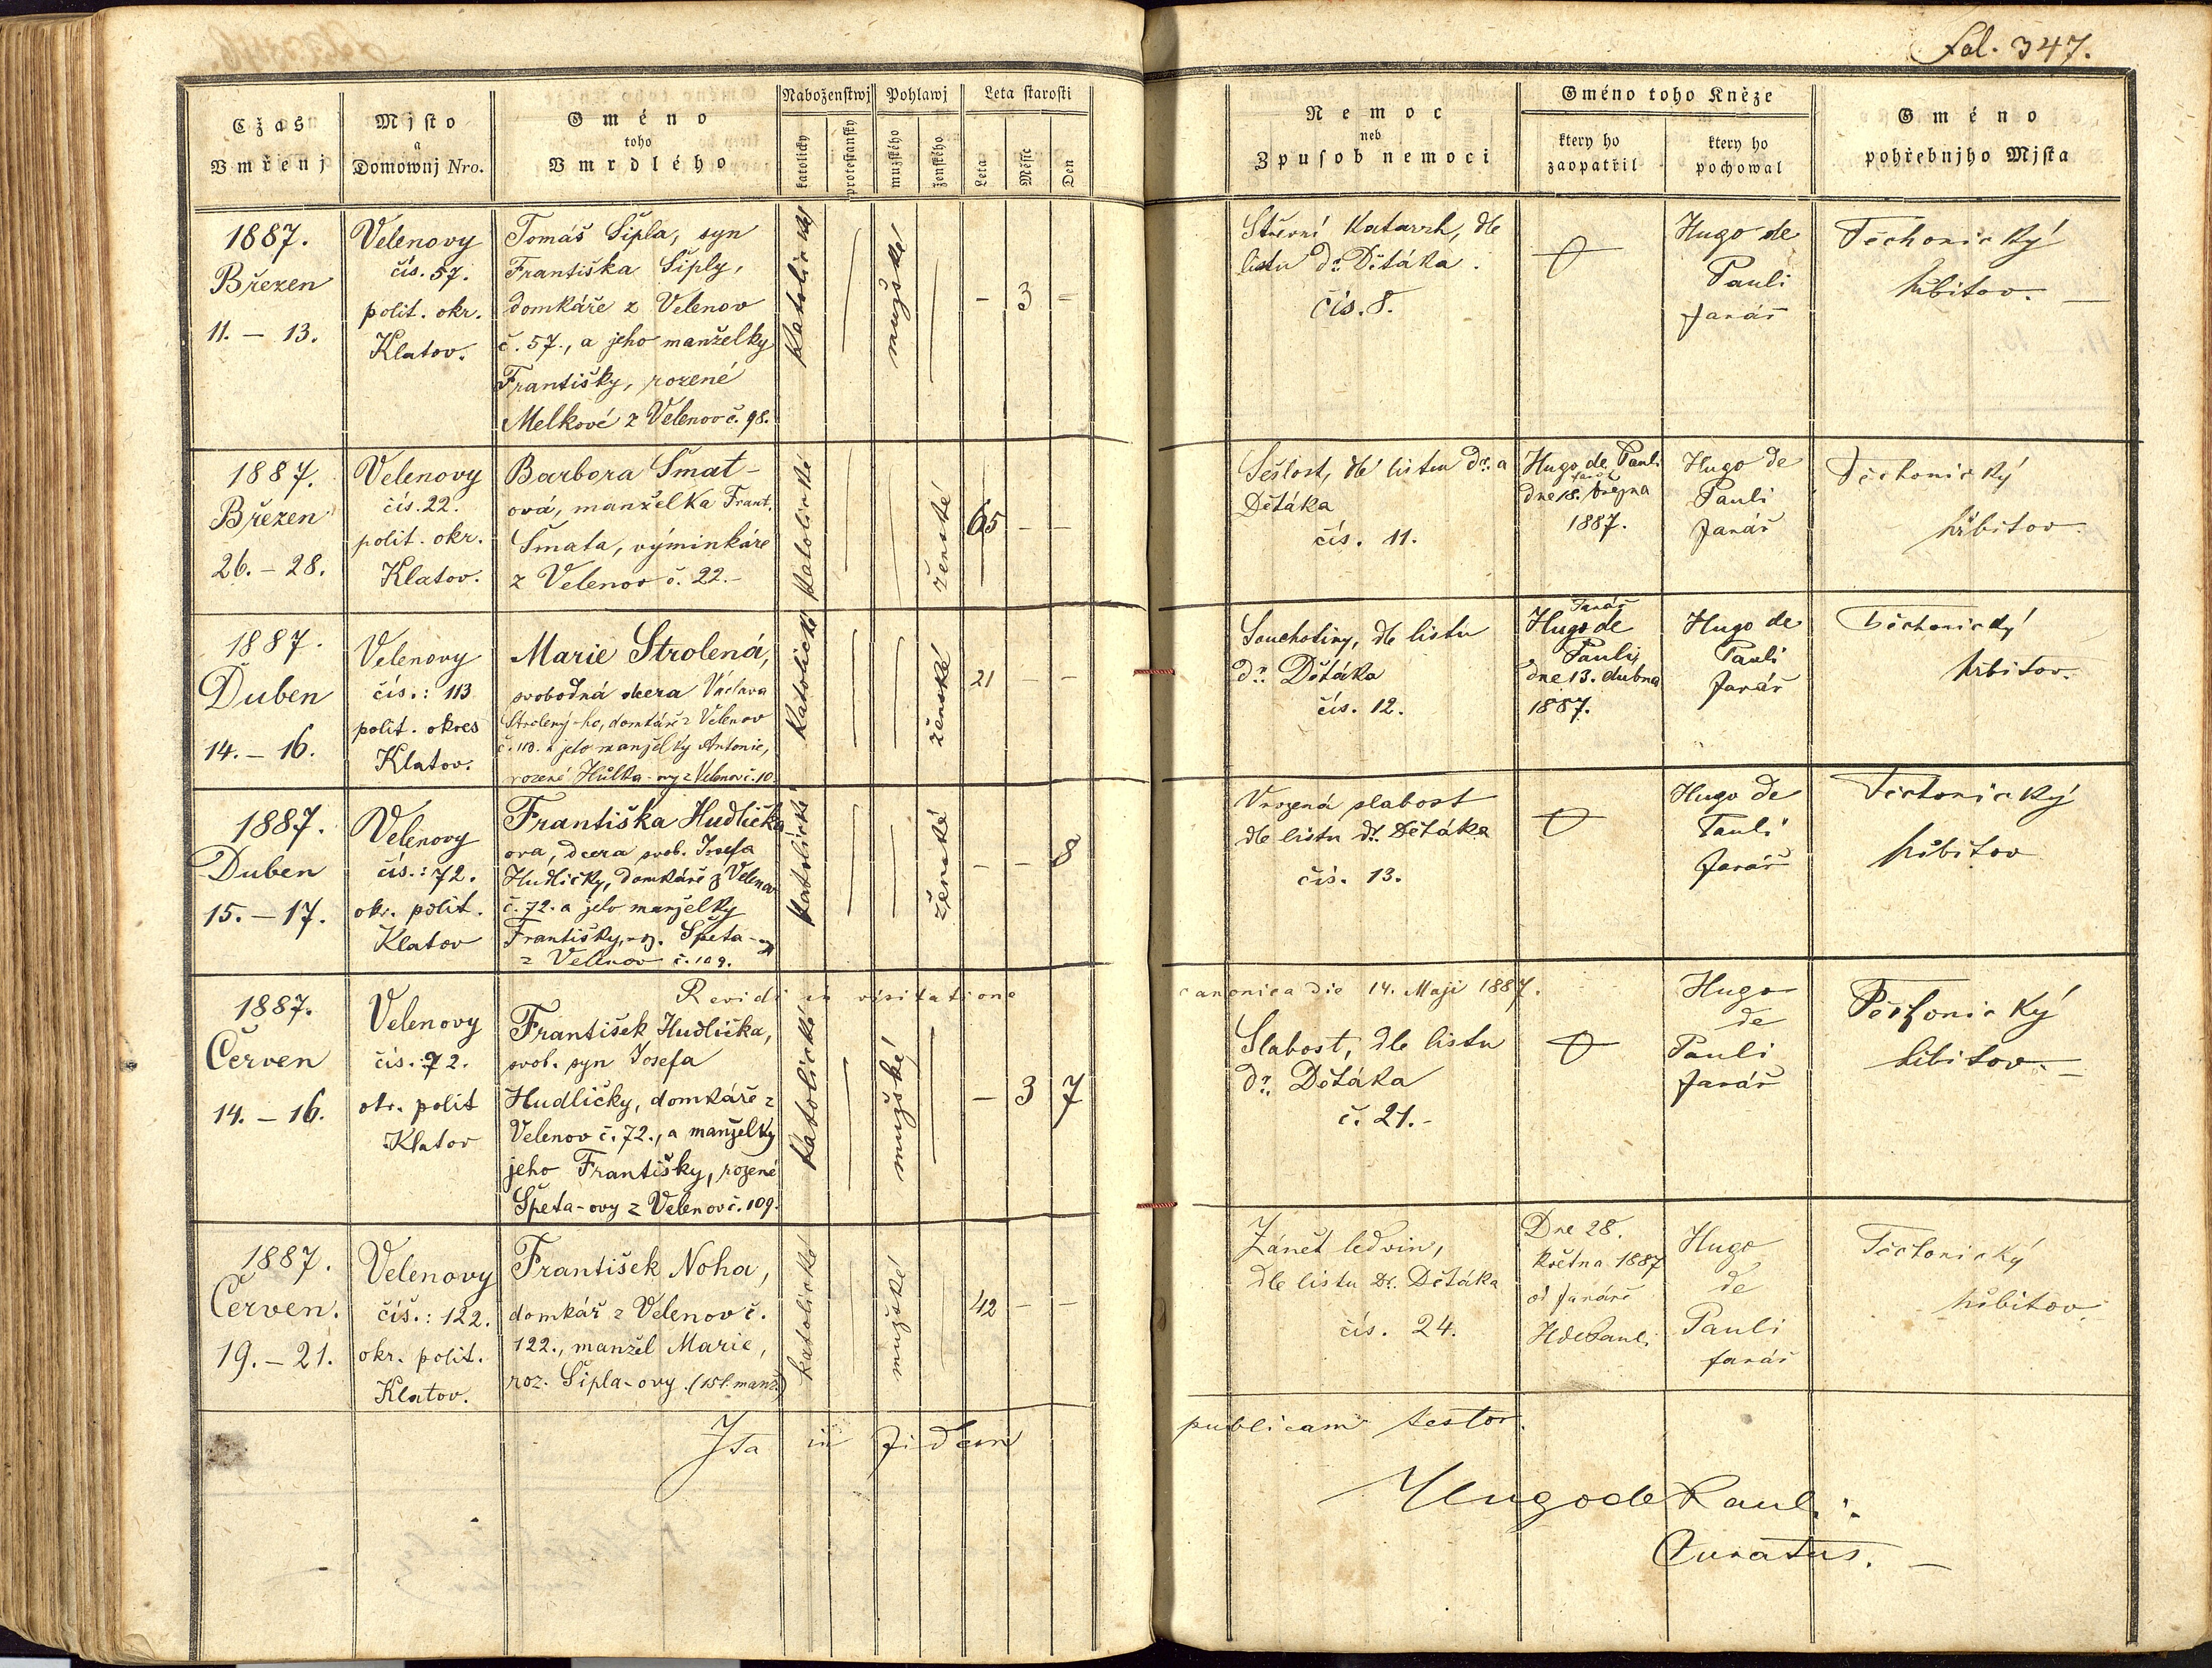 fol. 347.
Cžas Vmřenj
Mjsto a Domownj Nro.
Gméno toho Vmrdlého
Naboženstwj
katolický
protestanský
Pohlawj
mužského
ženského
Leta starosti
Leta
Měsíc
Den
Nemoc neb Zpusob nemoci
Gméno toho Kněze
ktery ho zaopatřil
ktery ho pochowal
Gméno pohřebnjho Mjsta
1887.
Březen
11. – 13.
Velenovy
čís. 57.
polit. okr.
Klatov.
Tomáš Šipla, syn
Františka Šiply,
domkáře z Velenov
č. 57., a jeho manželky
Františky, rozené
Melkové z Velenov č. 98.
katolické
mužské
– 3 –
Střevní Katarrh, dle
listu Dr. Dětáka.
čís. 8.
Hugo de
Pauli
farář
Těchonický
hřbitov. —
1887.
Březen
26. – 28.
Velenovy
čís. 22.
polit. okr.
Klatov.
Barbora Šmat-
ová, manželka Frant.
Šmata, výminkáře
z Velenov č. 22. –
katolické
ženské
65 – –
Sešlost, dle listu Dr. a
Dětáka
čís. 11.
Hugo de Pauli
farář
dne 18. března
1887.
Hugo de
Pauli
farář
Těchonický
hřbitov.
1887.
Duben
14. – 16.
Velenovy
čís.: 113
polit. okres
Klatov.
Marie Strolená,
svobodná dcera Václava
Strolený-ho, domkáře z Velenov
č. 113. a jeho manželky Antonie,
rozené Hůlka-ovy z Velenov č. 10.
katolické
ženské
21 – –
Souchotiny, dle listu
dr. Dětáka
čís. 12.
Farář
Hugo de
Pauli,
dne 13. dubna
1887.
Hugo de
Pauli
farář
Těchonický
hřbitov.
1887.
Duben
15. – 17.
Velenovy
čís.: 72.
okr. polit.
Klatov
Františka Hudličk-
ova, dcera svob. Josefa
Hudličky, domkáře z Velenov
č. 72. a jeho manželky
Františky, roz. Špeta-ovy
z Velenov č. 109.
katolické
ženské
– – 8
Vrozená slabost
dle listu dr. Dětáka
čís. 13.
Hugo de
Pauli
farář
Těchonický
hřbitov
Revidi in visitatione canonica die 14. Maji 1887.
1887.
Červen
14. – 16.
Velenovy
čís.: 72.
okr. polit
Klatov
František Hudlička,
svob. syn Josefa
Hudličky, domkáře z
Velenov č. 72., a manželky
jeho Františky, rozené
Špeta-ovy z Velenov č. 109.
katolické
mužské
– 3 7
Slabost, dle listu
dr. Dětáka
č. 21. –
Hugo
de
Pauli
farář
Těchonický
hřbitov. —
1887.
Červen.
19. – 21.
Velenovy
čís.: 122.
okr. polit.
Klatov.
František Noha,
domkář z Velenov č.
122., manžel Marie,
roz. Šipla-ovy. (15 l. manž.)
katolické
mužské
42 – –
Zánět ledvin,
dle listu Dr. Dětáka
čís. 24.
Dne 28.
května 1887
od faráře
H de Pauli
Hugo
de
Pauli
farář
Těchonický
hřbitov.
Ita in fidem publicam testor.
Hugo de Pauli.
Curatus. —